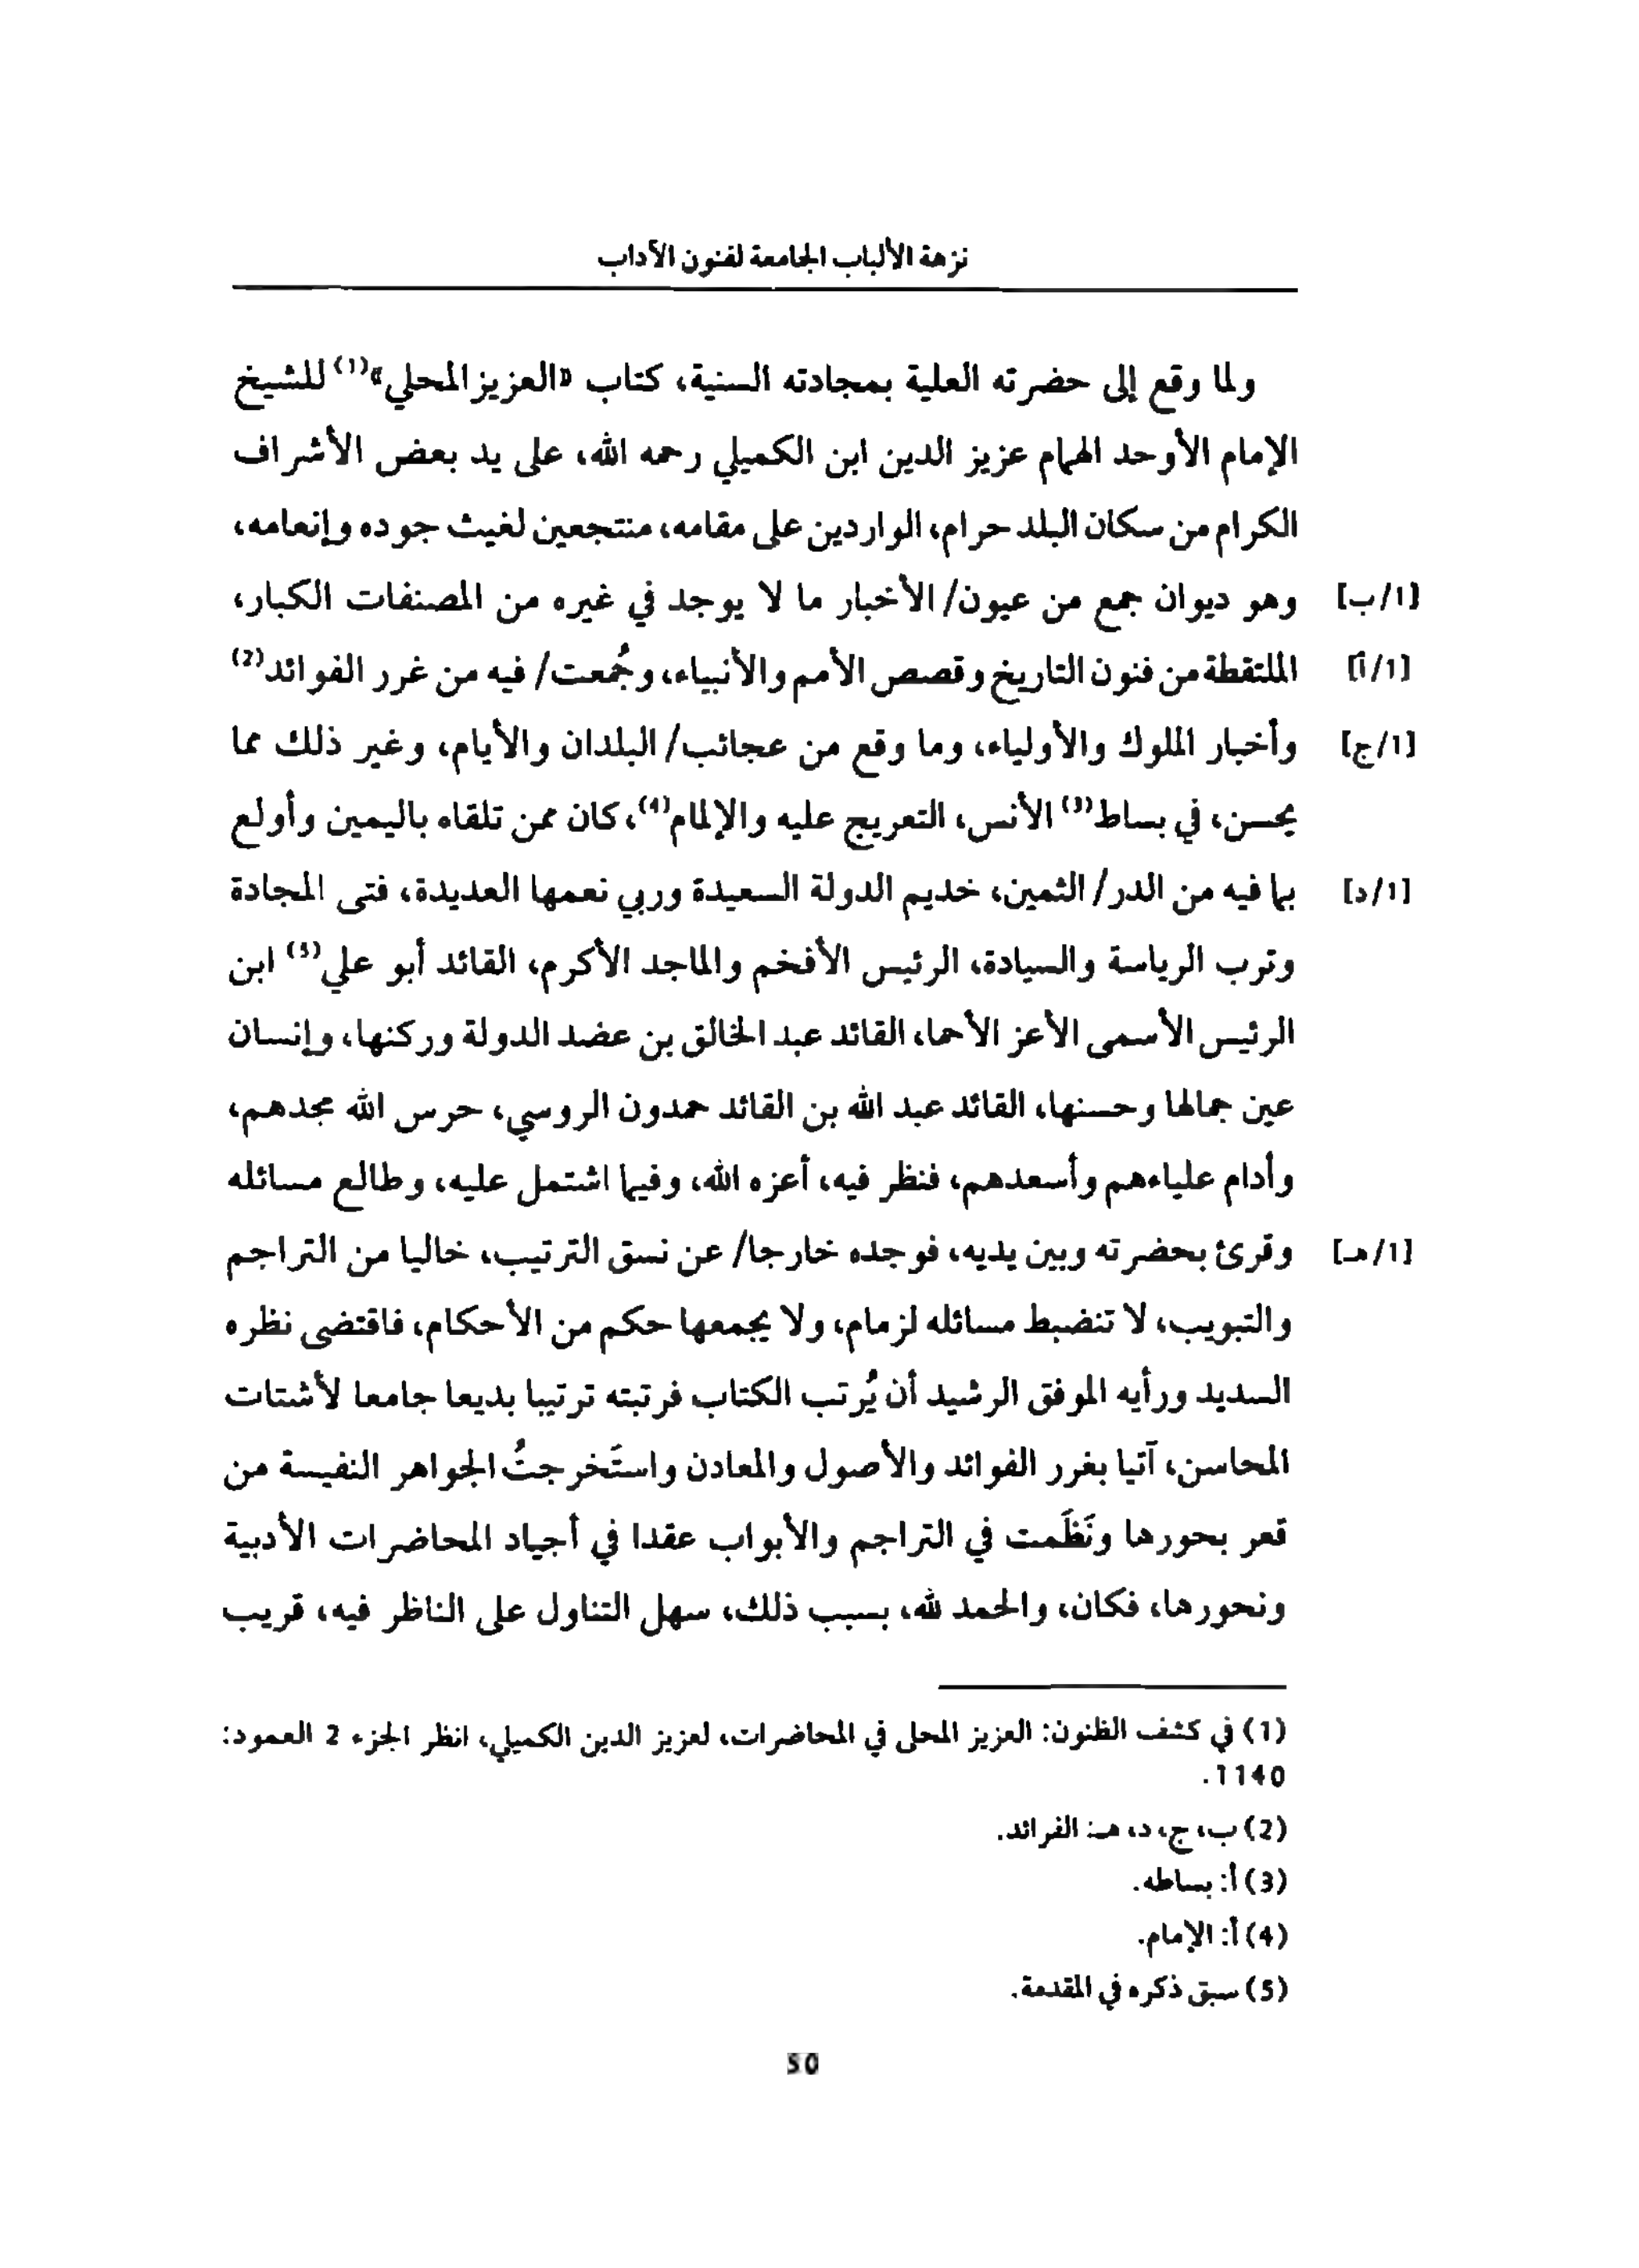 نزهة الألباب الجامعة لفنون الآداب
ولما وقع إلى حضرته العلية بمجادته السنية، كتاب «العزيز المحلي»(1) للشيخ
الإمام الأوحد الهمام عزيز الدين ابن الكميلي رحمه الله، على يد بعض الأشراف
الكرام من سكان البلد حرام، الواردين على مقامه، منتجعين لغيث جوده وإنعامه،
[1/ب] وهو ديوان جمع من عيون/ الأخبار ما لا يوجد في غيره من المصنفات الكبار،
[1/أ] الملتقطة من فنون التاريخ وقصص الأمم والأنبياء، وجُمعت/ فيه من غرر الفوائد(2)
[1/ج] وأخبار الملوك والأولياء، وما وقع من عجائب/ البلدان والأيام، وغير ذلك مما
يحسن، في بساط(3) الأنس، التعريج عليه والإلمام(4)، كان ممن تلقاه باليمين وأولع
[1/د] بما فيه من الدر/ الثمين، خديم الدولة السعيدة وربي نعمها العديدة، فتى المجادة
وترب الرياسة والسيادة، الرئيس الأفخم والماجد الأكرم، القائد أبو علي(5) ابن
الرئيس الأسمى الأعز الأحما، القائد عبد الخالق بن عضد الدولة وركنها، وإنسان
عين جمالها وحسنها، القائد عبد الله بن القائد حمدون الروسي، حرس الله مجدهم،
وأدام علياءهم وأسعدهم، فنظر فيه، أعزه الله، وفيما اشتمل عليه، وطالع مسائله
[1/هـ] وقرئ بحضرته وبين يديه، فوجده خارجا/ عن نسق الترتيب، خاليا من التراجم
والتبويب، لا تنضبط مسائله لزمام، ولا يجمعها حكم من الأحكام، فاقتضى نظره
السديد ورأيه الموفق الرشيد أن يُرتب الكتاب فرتبته ترتيبا بديعا جامعا لأشتات
المحاسن، آتيا بغرر الفوائد والأصول والمعادن واستَخرجتُ الجواهر النفيسة من
قعر بحورها ونَظَمت في التراجم والأبواب عقدا في أجياد المحاضرات الأدبية
ونحورها، فكان، والحمد لله، بسبب ذلك، سهل التناول على الناظر فيه، قريب
(1) في كشف الظنون: العزيز المحلى في المحاضرات، لعزيز الدين الكميلي، انظر الجزء 2 العمود:
1140.
(2) ب، ج، د، هـ: الفرائد.
(3) أ: بساطه.
(4) أ: الإمام.
(5) سبق ذكره في المقدمة.
50